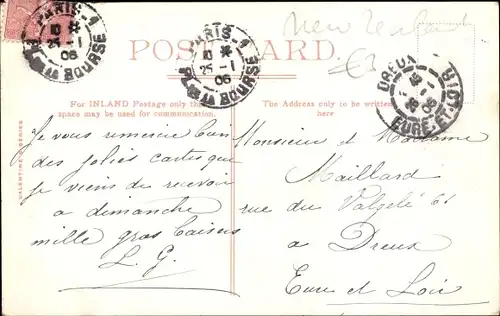 PARIS-1
25-1
06
PL. DE LA BOURSE
PARIS-1
25-1
06
PL. DE LA BOURSE
POST CARD.
New Zealand
DREUX
06
EURE-ET-LOIR
For INLAND Postage only this
space may be used for communication.
The Address only to be written
here
VALENTINE'S SERIES
Je vous remercie bien
des jolies cartes que
je viens de recevoir
a dimanche
mille gros baisers
L. G.
Monsieur et Madame
Maillard
rue du
a Dreux
Eure et Loir